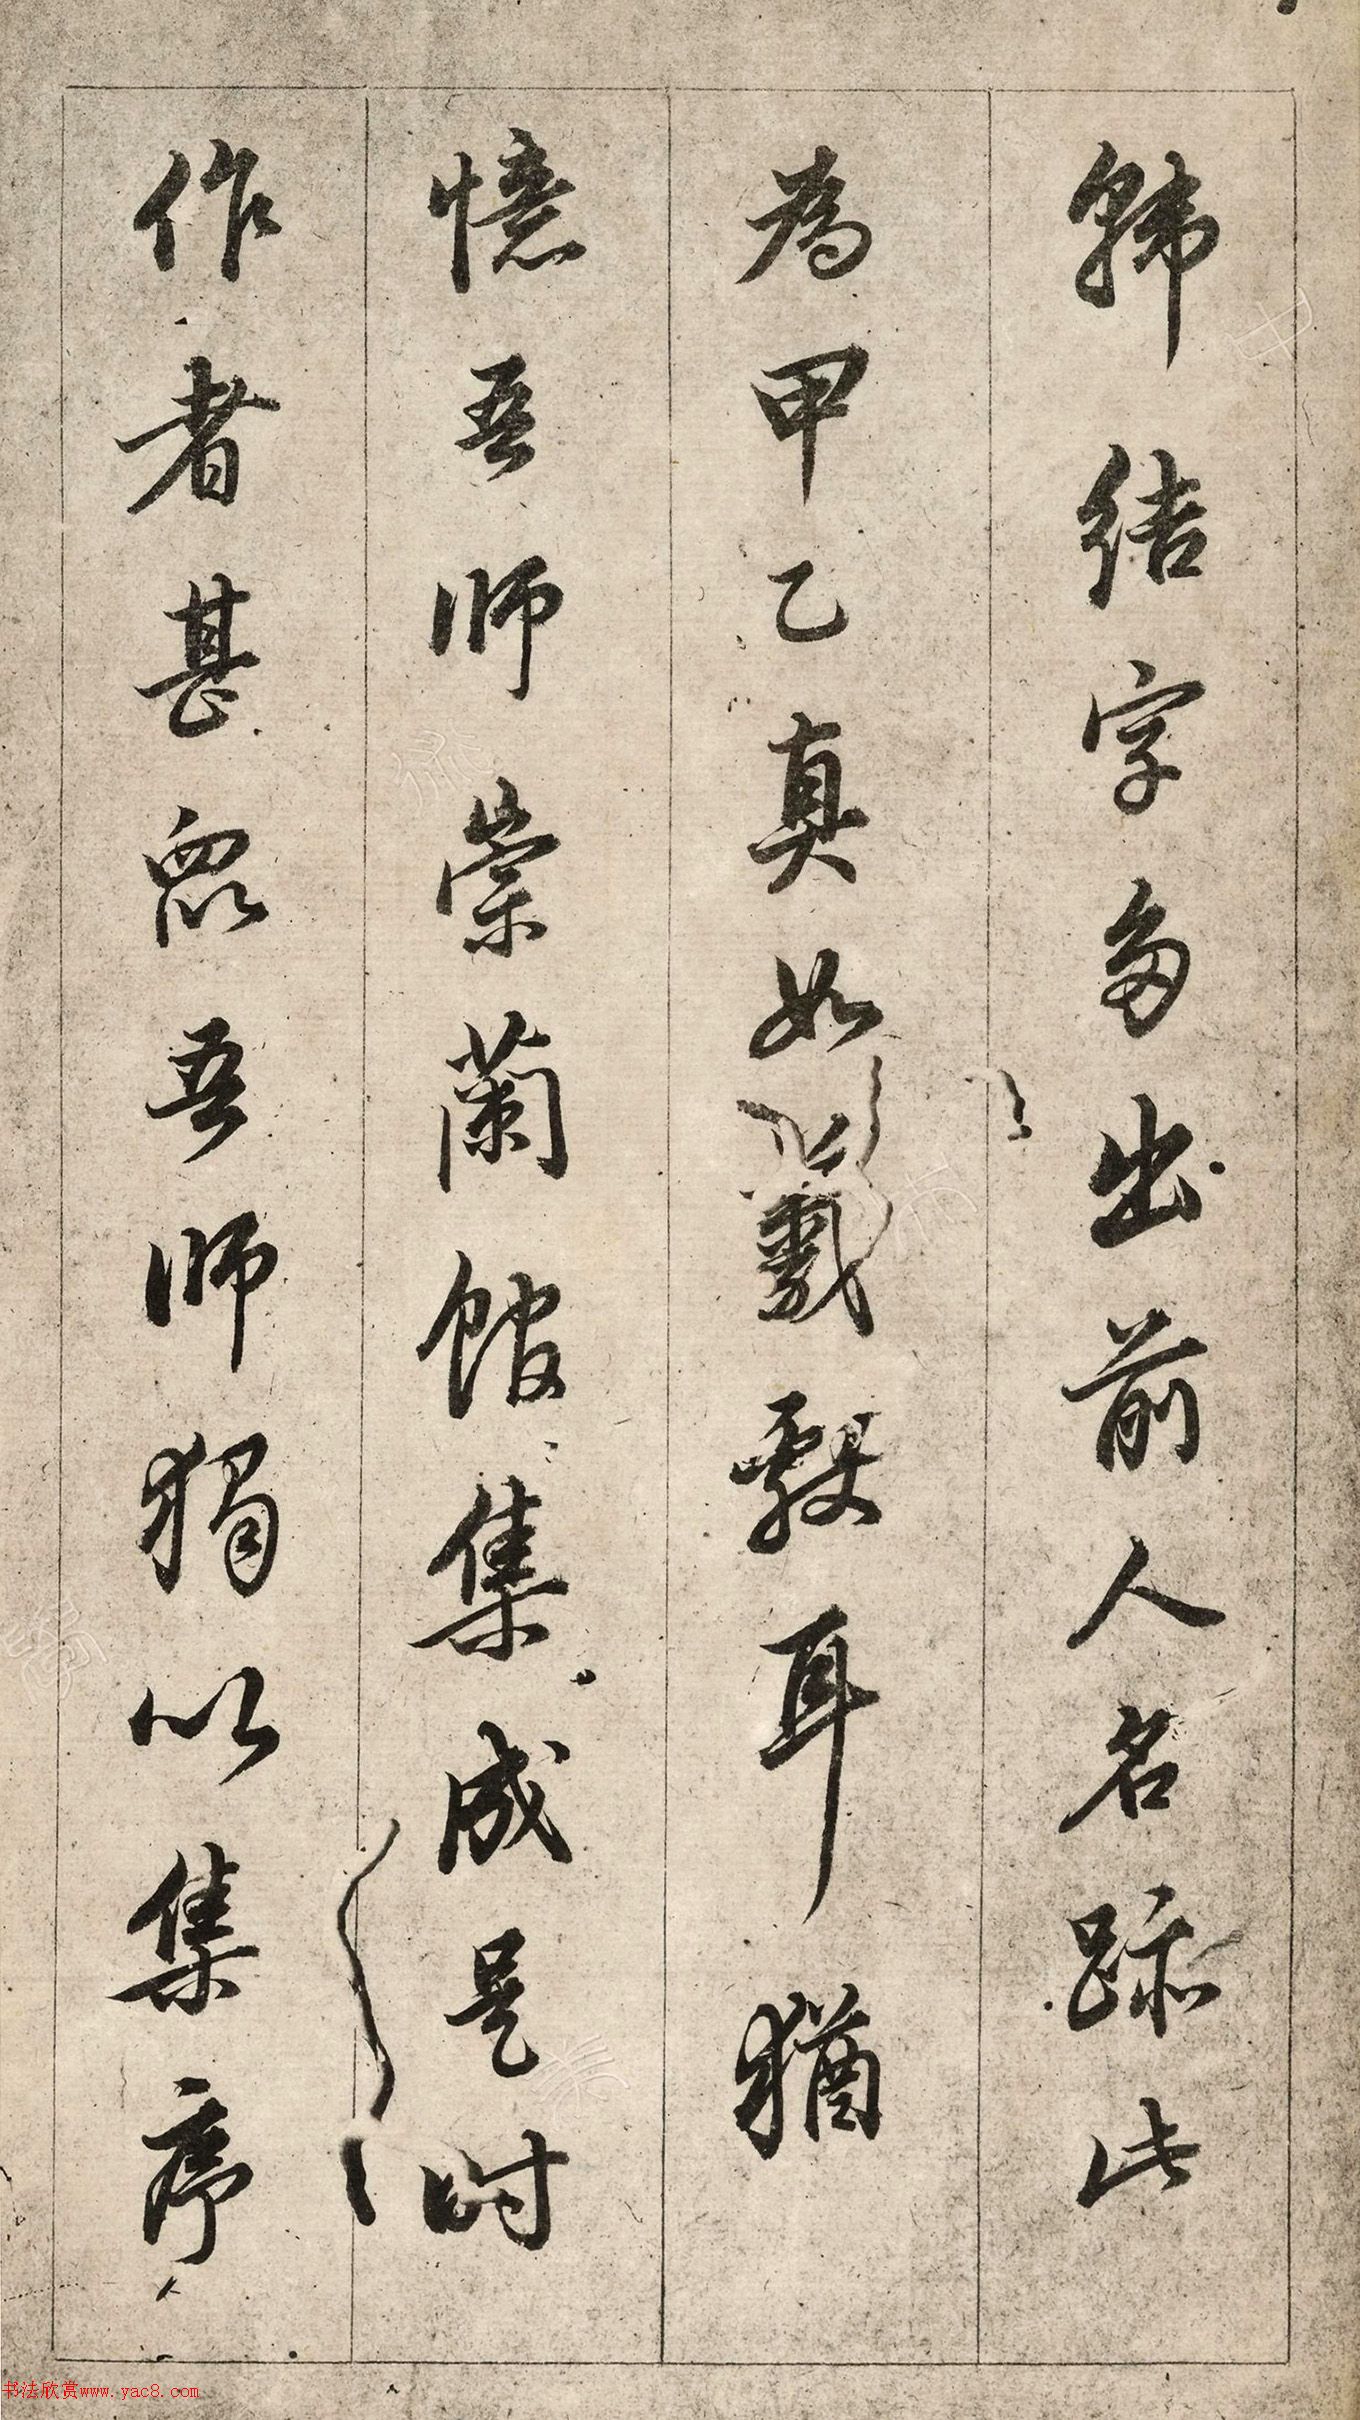 歸結字多出前人名跡此
為甲乙真如羲彀耳猶
憶吾師崇蘭館集成是時
作者甚眾吾師獨以集序
书法欣赏www.yac8.com